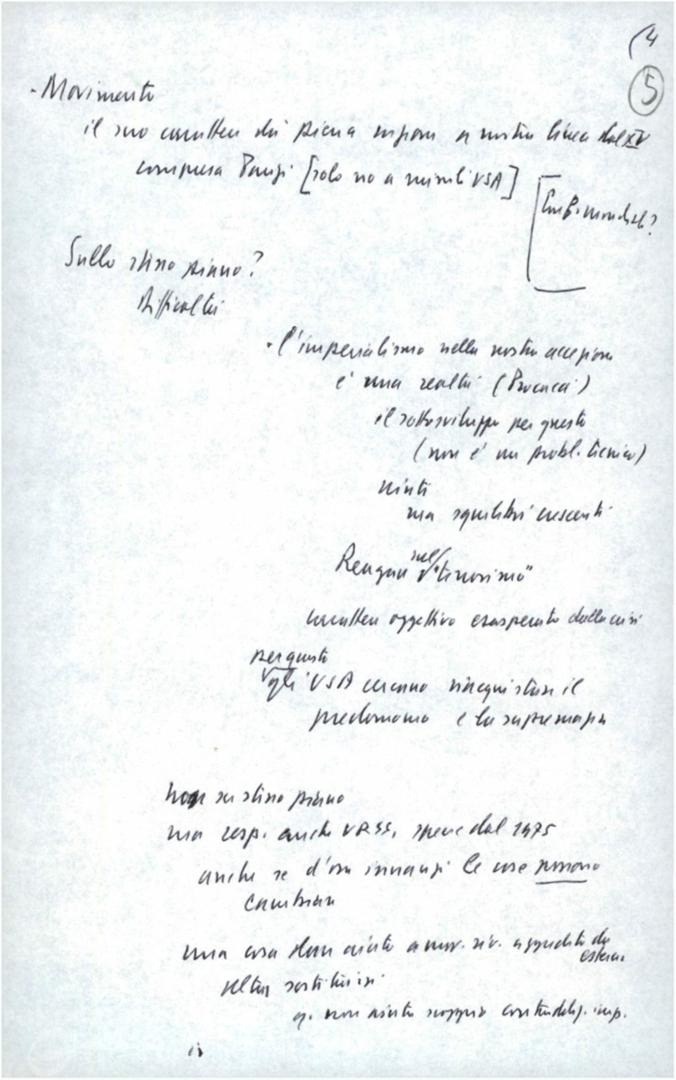 (4
5
- Movimento
il suo carattere di pace risponde a nostra linea dal XV
compresa Parigi [solo no a missili USA]
Sullo stesso piano?
difficoltà
• l'imperialismo nella nostra accezione
è una realtà
il sottosviluppo per questo
(non è un probl. tecnico)
ma squilibri crescenti
Reagan sul "terrorismo"
carattere oggettivo esasperato dalla crisi
per questo
gli USA cercano riacquistare il
predominio e la supremazia
Non su stesso piano
ma resp. anche URSS, specie dal 1975
anche se d'ora innanzi le cose possono
cambiare
una cosa dare aiuto a mov. riv. aggredito da
esterno
altra sostituirsi